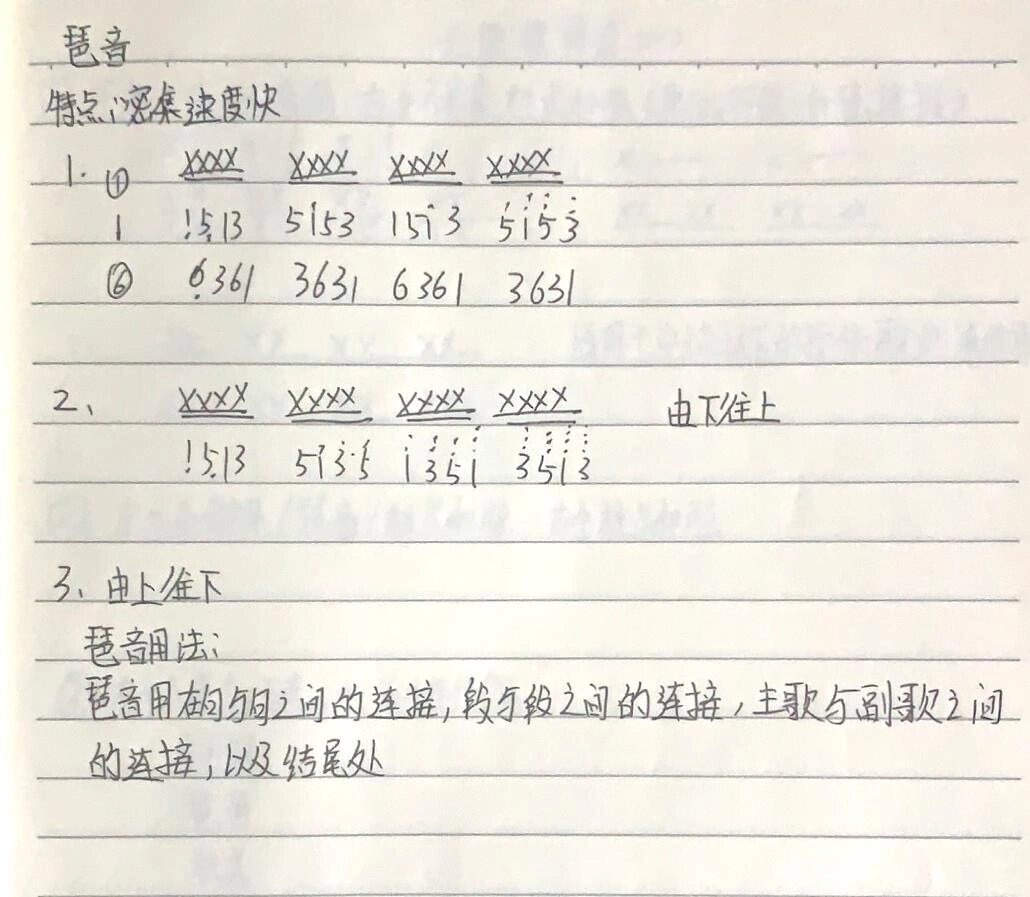 琶音
特点:密集速度快
1. ① XXXX XXXX XXXX XXXX
1 1513 5153 1513 5153
⑥ 6361 3631 6361 3631
2、 XXXX XXXX XXXX XXXX 由下往上
1513 5135 1351 3513
3、由上往下
琶音用法:
琶音用在句与句之间的连接,段与段之间的连接,主歌与副歌之间
的连接,以及结尾处